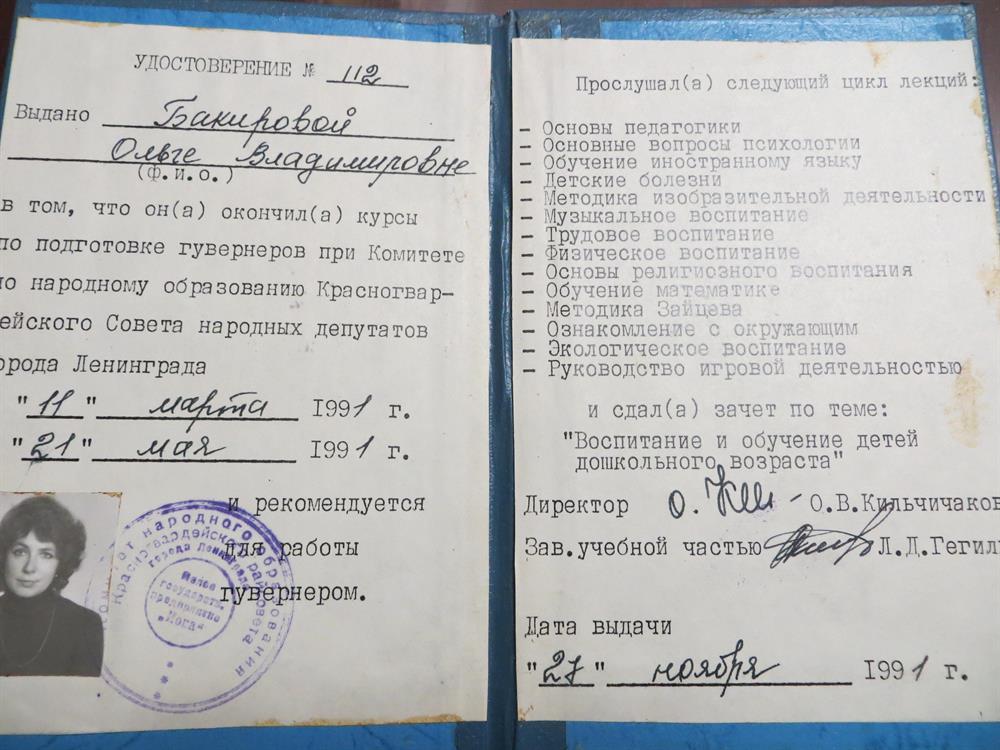 УДОСТОВЕРЕНИЕ № 112
Выдано Бакировой
Ольге Владимировне
(Ф.И.О.)
в том, что он(а) окончил(а) курсы
по подготовке гувернеров при Комитете
по народному образованию Красногвар-
ейского Совета народных депутатов
орода Ленинграда
"11" марта 1991 г.
"21" мая 1991 г.
и рекомендуется
для работы
гувернером.
народного образования
Красногвардейского райсовета
города Ленинграда
Малое
государств.
предприятие
Прослушал(а) следующий цикл лекций:
- Основы педагогики
- Основные вопросы психологии
- Обучение иностранному языку
- Детские болезни
- Методика изобразительной деятельности
- Музыкальное воспитание
- Трудовое воспитание
- Физическое воспитание
- Основы религиозного воспитания
- Обучение математике
- Методика Зайцева
- Ознакомление с окружающим
- Экологическое воспитание
- Руководство игровой деятельностью
и сдал(а) зачет по теме:
"Воспитание и обучение детей
дошкольного возраста"
Директор О.В.Кильчичаков
Зав.учебной частью Л.Д.Гегил
Дата выдачи
"27" ноября 1991 г.